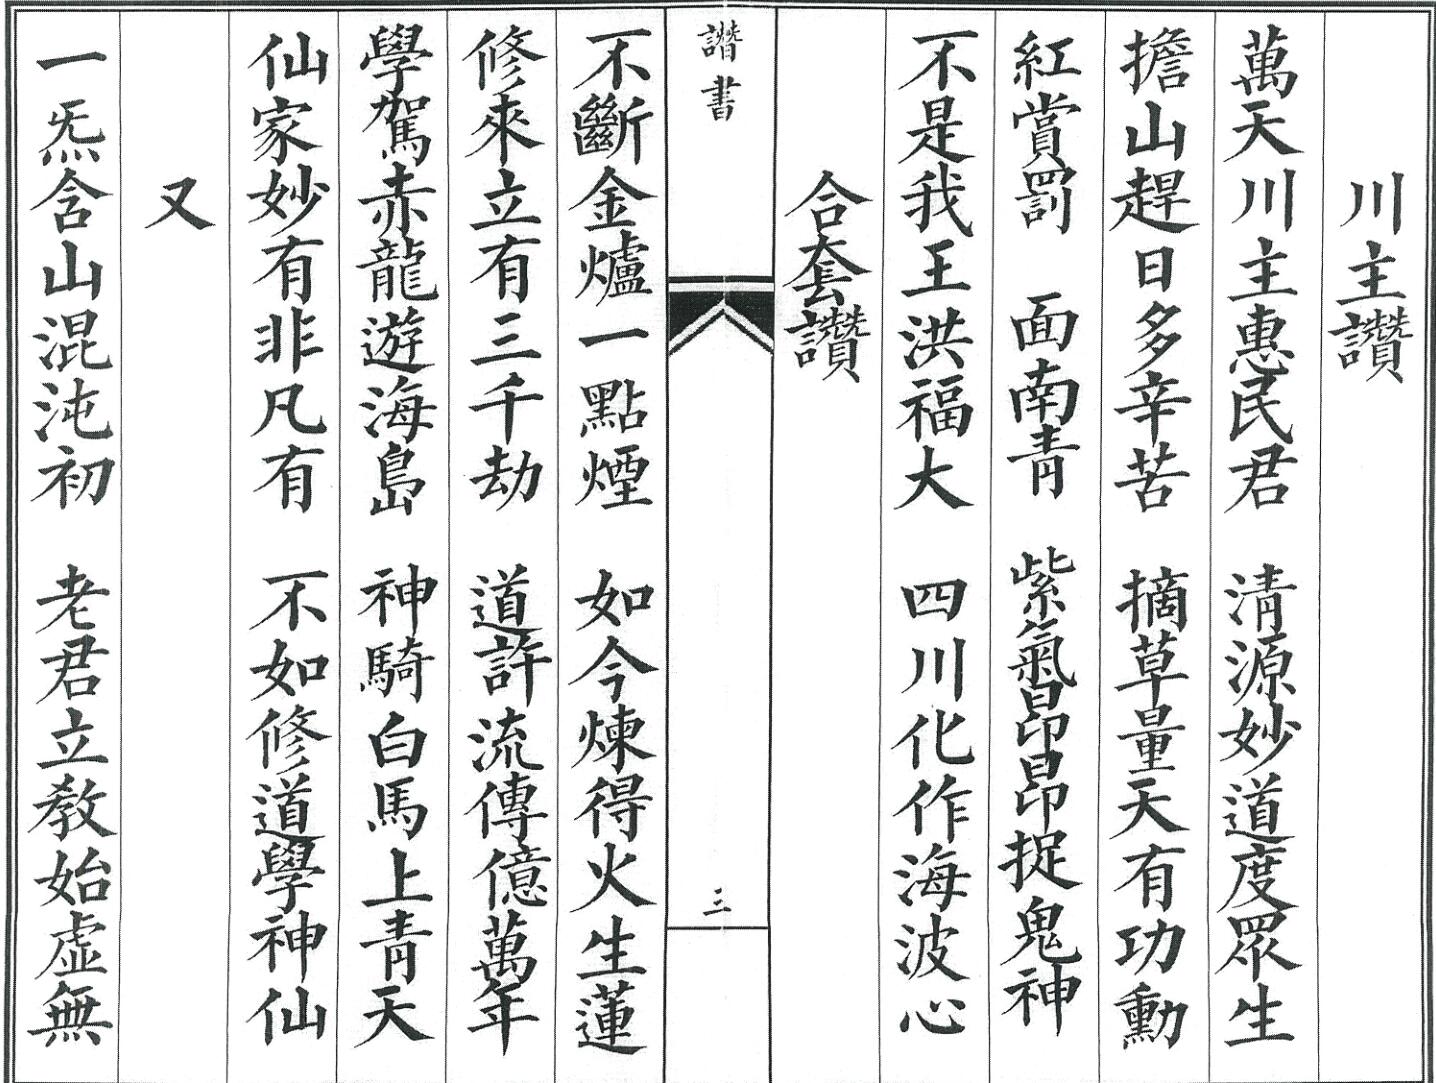 川主讚
萬天川主惠民君　清源妙道度眾生
擔山趕日多辛苦　摘草量天有功勳
紅賞罰　面南青　紫氣昂昂捉鬼神
不是我王洪福大　四川化作海波心
合套讚
讚書
三
不斷金爐一點煙　如今煉得火生蓮
修來立有三千劫　道許流傳億萬年
學駕赤龍遊海島　神騎白馬上青天
仙家妙有非凡有　不如修道學神仙
又
一炁含山混沌初　老君立教始虛無